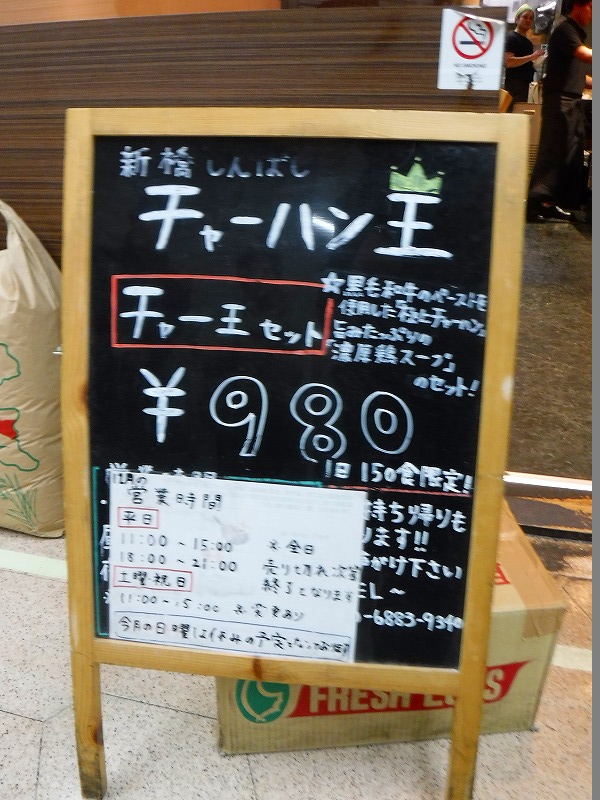 NO SMOKING
新橋 しんばし
チャーハン王
チャー王 セット
☆黒毛和牛のペーストを
使用した「極上チャーハン」
旨みたっぷりの
「濃厚鶏スープ」
のセット!
¥980
1日 150食限定!
持ち帰りも
ます!!
がけ下さい
EL～
-6883-934
11月の
営業時間
平日
11:00 ~ 15:00
18:00 ~ 21:00
土曜・祝日
11:00 ~ 15:00 ※変更あり
※全日
売り切れ次第
終了となります
今月の日曜は休みの予定となって
FRESH E